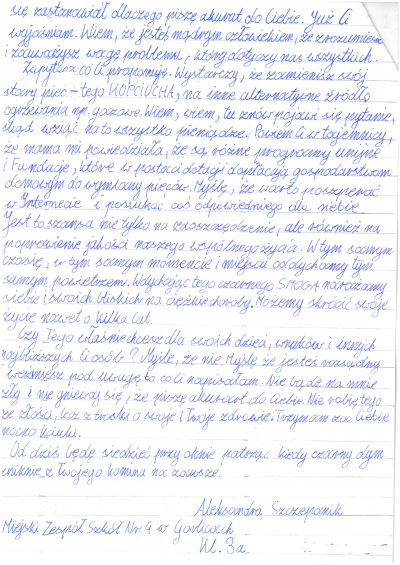 się zastanawiał dlaczego piszę akurat do Ciebie. Już Ci
wyjaśniam. Wiem, że jesteś mądrym człowiekiem, że zrozumiesz
i zauważysz wagę problemu, który dotyczy nas wszystkich.
Zapytasz co Ci proponuję. Wystarczy, że zamienisz swój
stary piec - tego KOPCIUCHA, na inne alternatywne źródło
ogrzewania np. gazowe. Wiem, wiem, tu znów pojawi się pytanie,
skąd wziąć na to wszystko pieniądze. Powiem Ci w tajemnicy,
że mama mi powiedziała, że są różne programy unijne
i Fundacje, które w postaci dotacji dopłacają gospodarstwom
domowym do wymiany pieców. Myślę, że warto poszperać
w Internecie i poszukać coś odpowiedniego dla siebie.
Jest to szansa nie tylko na zaoszczędzenie, ale również na
poprawienie jakości naszego wspólnego życia. W tym samym
czasie, w tym samym momencie i miejscu oddychamy tym
samym powietrzem. Wdychając tego czarnego SMOGA narażamy
siebie i swoich bliskich na ciężkie choroby. Możemy skrócić swoje
życie nawet o kilka lat.
Czy Tego właśnie chcesz dla swoich dzieci, wnuków i innych
najbliższych Ci osób? Myślę, że nie. Myślę że jesteś rozsądny
i weźmiesz pod uwagę to co Ci napisałam. Nie bądź na mnie
zły i nie gniewaj się, że piszę akurat do Ciebie. Nie robię tego
ze złości, lecz z troski o swoje i Twoje zdrowie. Trzymam za Ciebie
mocno kciuki.
Od dziś będę siedzieć przy oknie patrząc kiedy czarny dym
zniknie z Twojego komina na zawsze.
Aleksandra Szczepanik
Miejski Zespół Szkół Nr 4 w Gorlicach
kl. 3a